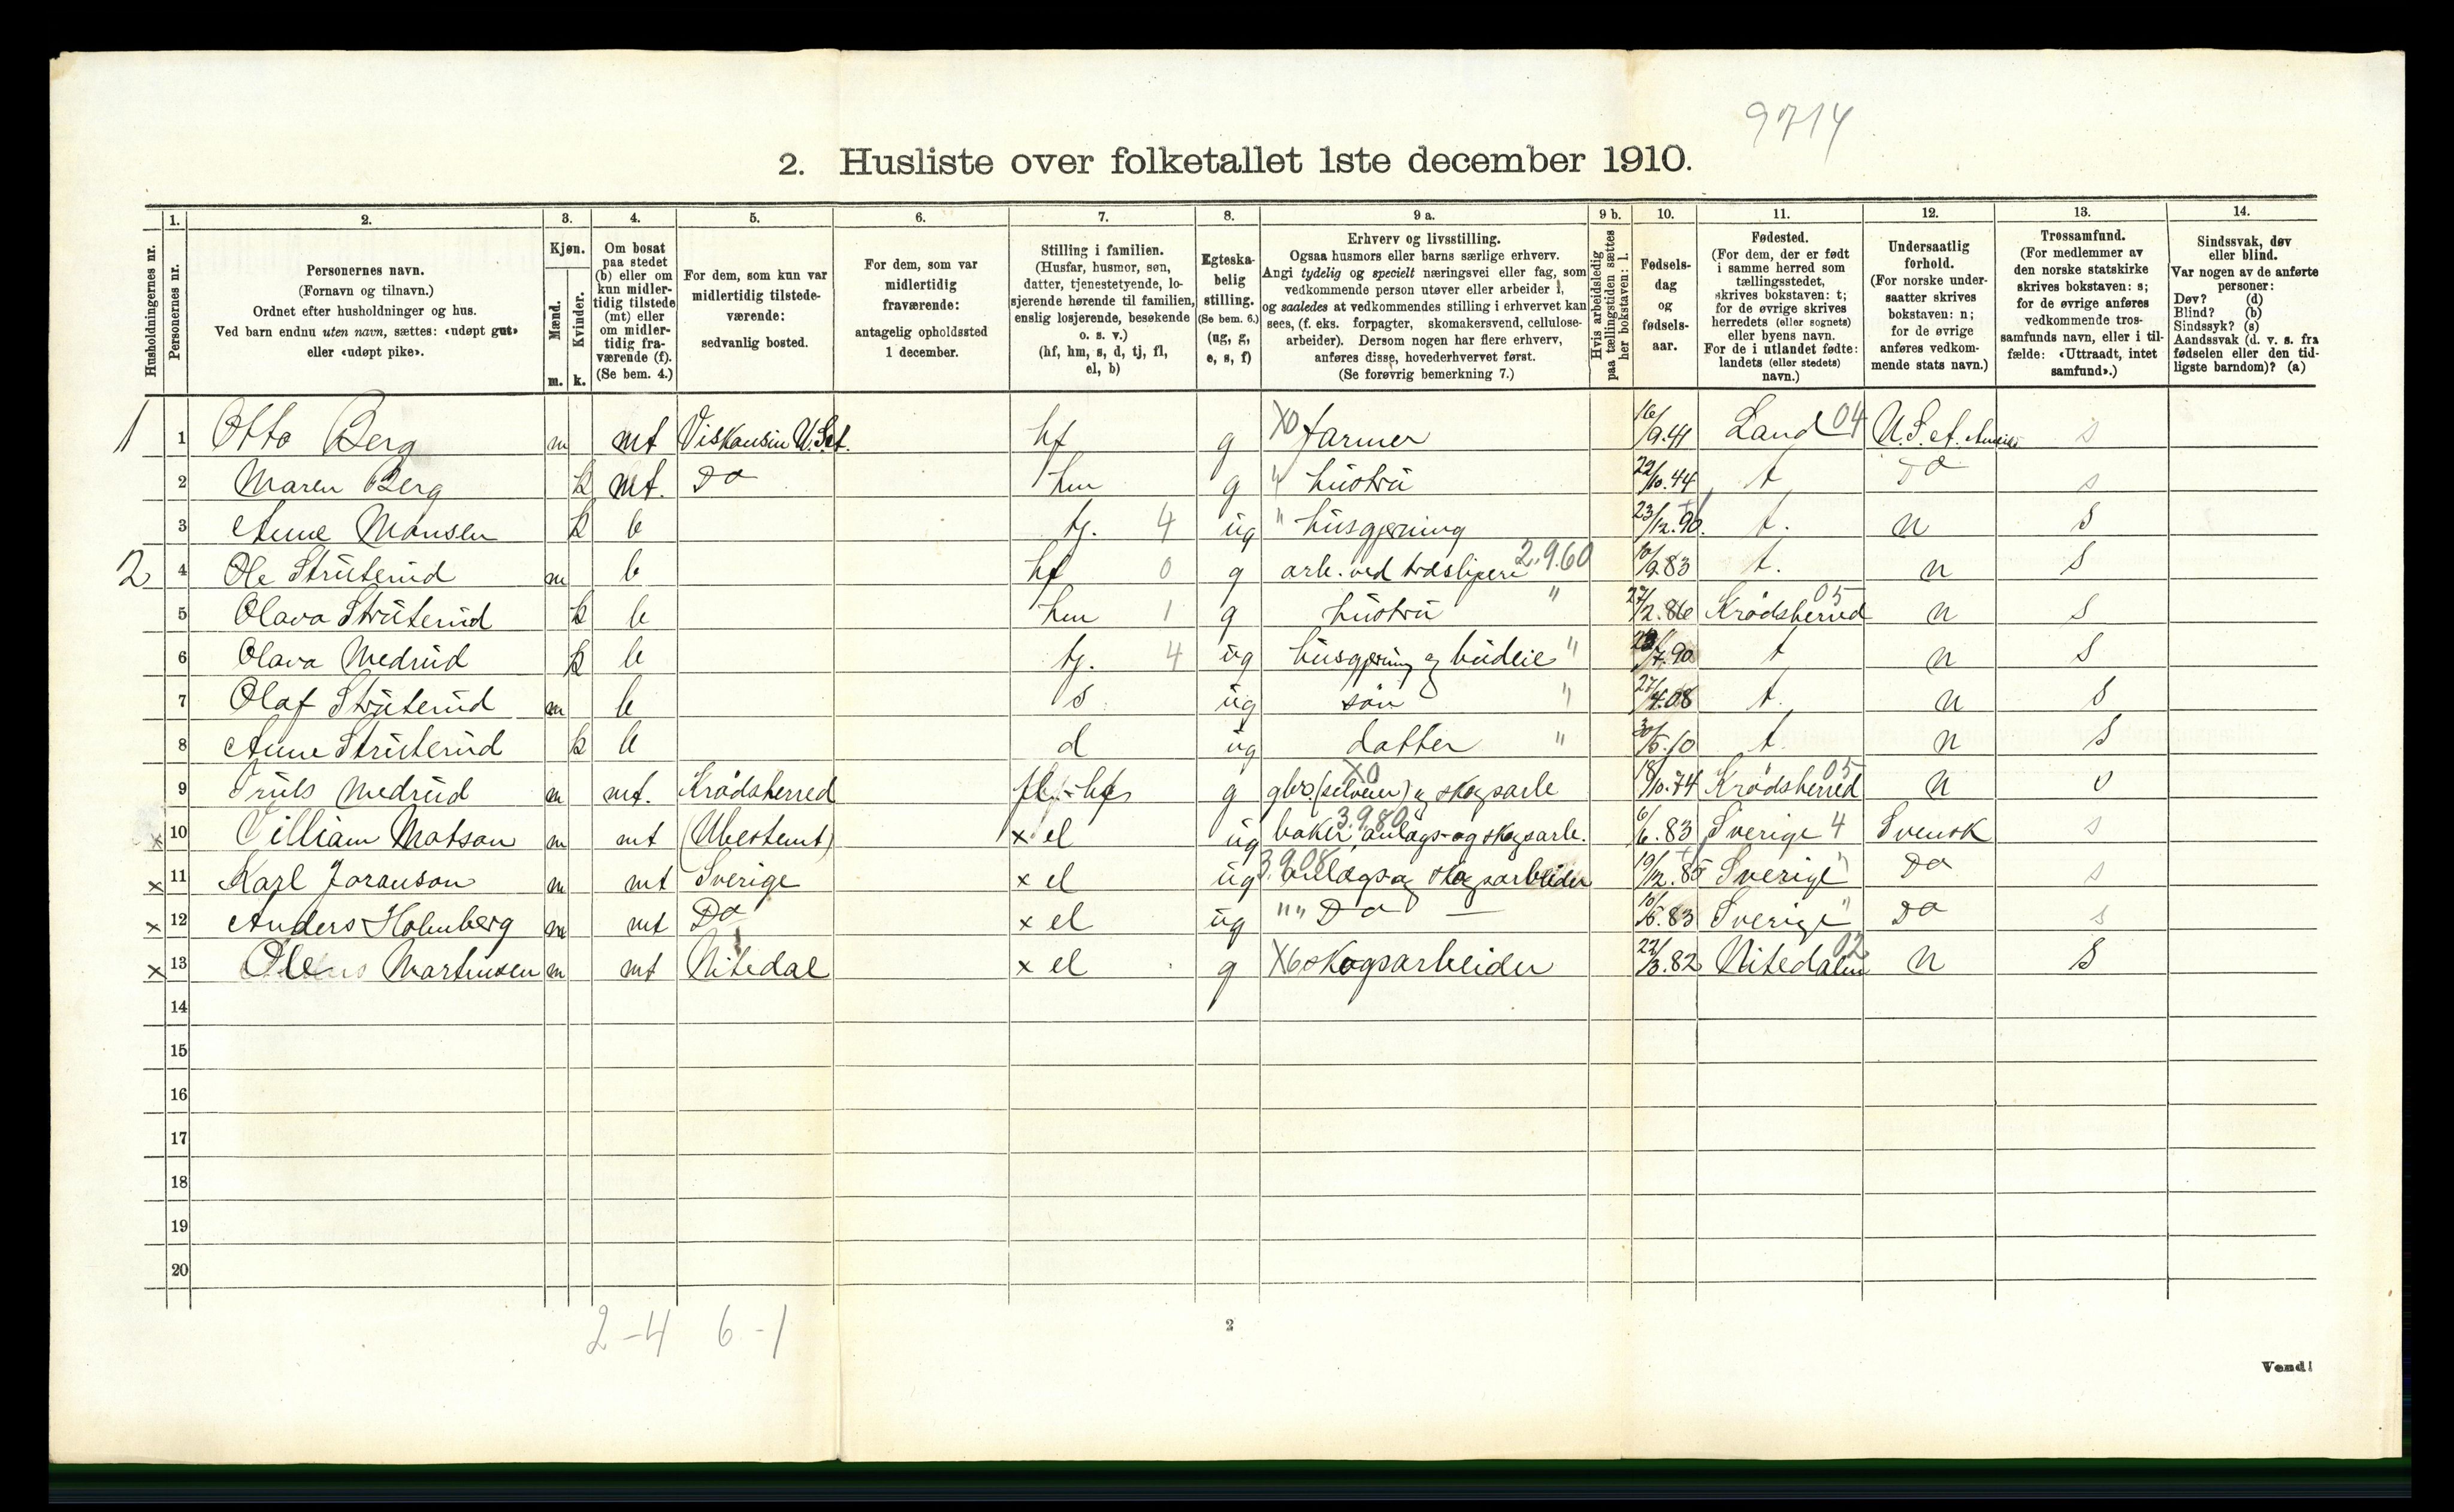 9714
2. Husliste over folketallet 1ste december 1910.
Husholdningernes nr.
1. Personernes nr.
2. Personernes navn. (Fornavn og tilnavn.) Ordnet efter husholdninger og hus. Ved barn endnu uten navn, sættes: «udøpt gut» eller «udøpt pike».
3. Kjøn. Mænd. m. Kvinder. k.
4. Om bosat paa stedet (b) eller om kun midlertidig tilstede (mt) eller om midlertidig fraværende (f). (Se bem. 4.)
5. For dem, som kun var midlertidig tilstedeværende: sedvanlig bosted.
6. For dem, som var midlertidig fraværende: antagelig opholdssted 1 december.
7. Stilling i familien. (Husfar, husmor, søn, datter, tjenestetyende, losjerende hørende til familien, enslig losjerende, besøkende o. s. v.) (hf, hm, s, d, tj, fl, el, b)
8. Egteskabelig stilling. (Se bem. 6.) (ug, g, e, s, f)
9 a. Erhverv og livsstilling. Ogsaa husmors eller barns særlige erhverv. Angi tydelig og specielt næringsvei eller fag, som vedkommende person utøver eller arbeider i, og saaledes at vedkommendes stilling i erhvervet kan sees, (f. eks. forpagter, skomakersvend, cellulosearbeider). Dersom nogen har flere erhverv, anføres disse, hovederhvervet først. (Se forøvrig bemerkning 7.)
9 b. Hvis arbeidsledig paa tællingstiden sættes her bokstaven: l.
10. Fødselsdag og fødselsaar.
11. Fødested. (For dem, der er født i samme herred som tællingsstedet, skrives bokstaven: t; for de øvrige skrives herredets (eller sognets) eller byens navn. For de i utlandet fødte: landets (eller stedets) navn.)
12. Undersaatlig forhold. (For norske undersaatter skrives bokstaven: n; for de øvrige anføres vedkommende stats navn.)
13. Trossamfund. (For medlemmer av den norske statskirke skrives bokstaven: s; for de øvrige anføres vedkommende trossamfunds navn, eller i tilfælde: «Uttraadt, intet samfund».)
14. Sindssvak, døv eller blind. Var nogen av de anførte personer: Døv? (d) Blind? (b) Sindssyk? (s) Aandssvak (d. v. s. fra fødselen eller den tidligste barndom)? (a)
1 1 Otto Berg m mt Viskansin U.S.A. hf g X0 farmer 16/9.41 Land 04 U.S.A. s
2 Maren Berg k mt. Do hm g " hustru 22/10.44 t Do s
3 Anne Monsen k b tj. 4 ug " husgjerning 23/12.90. t. n s
2 4 Ole Struterud m b hf 0 g arb. ved træsliperi 2.9.60 10/9.83 t. n s
5 Olava Struterud k b hm 1 g hustru " 27/2.86 Krødsherred 05 n s
6 Olava Medrud k b tj. 4 ug husgjerning og budeie " /7.90 t n s
7 Olaf Struterud m b s ug søn " 27/4.08 t. n s
8 Anne Struterud k b d ug datter " 30/5.10 t. n s
9 Truls Medrud m mt. Krødsherred fl - hf g gbr. (selveier) og skogsarb X0 18/10.74 Krødsherred 05 n
x 10 Villiam Matson m mt (Ubestemt) x el ug baker, anlægs- og skogsarb. 3.9.80 6/6.83 Sverige 4 Svensk s
x 11 Karl Joranson m mt Sverige x el ug 3.9.08 anlægs og skogsarbeider 19/12.85 Sverige " Do s
x 12 Anders Holmberg m mt Do x el ug "" Do — 10/5.83 Sverige " Do s
x 13 Ole Martinsen m mt Nitedal x el g X6 skogsarbeider 22/3.82 Nitedalen 02 n s
14
15
16
17
18
19
20
2-4 6-1
2
Vend!